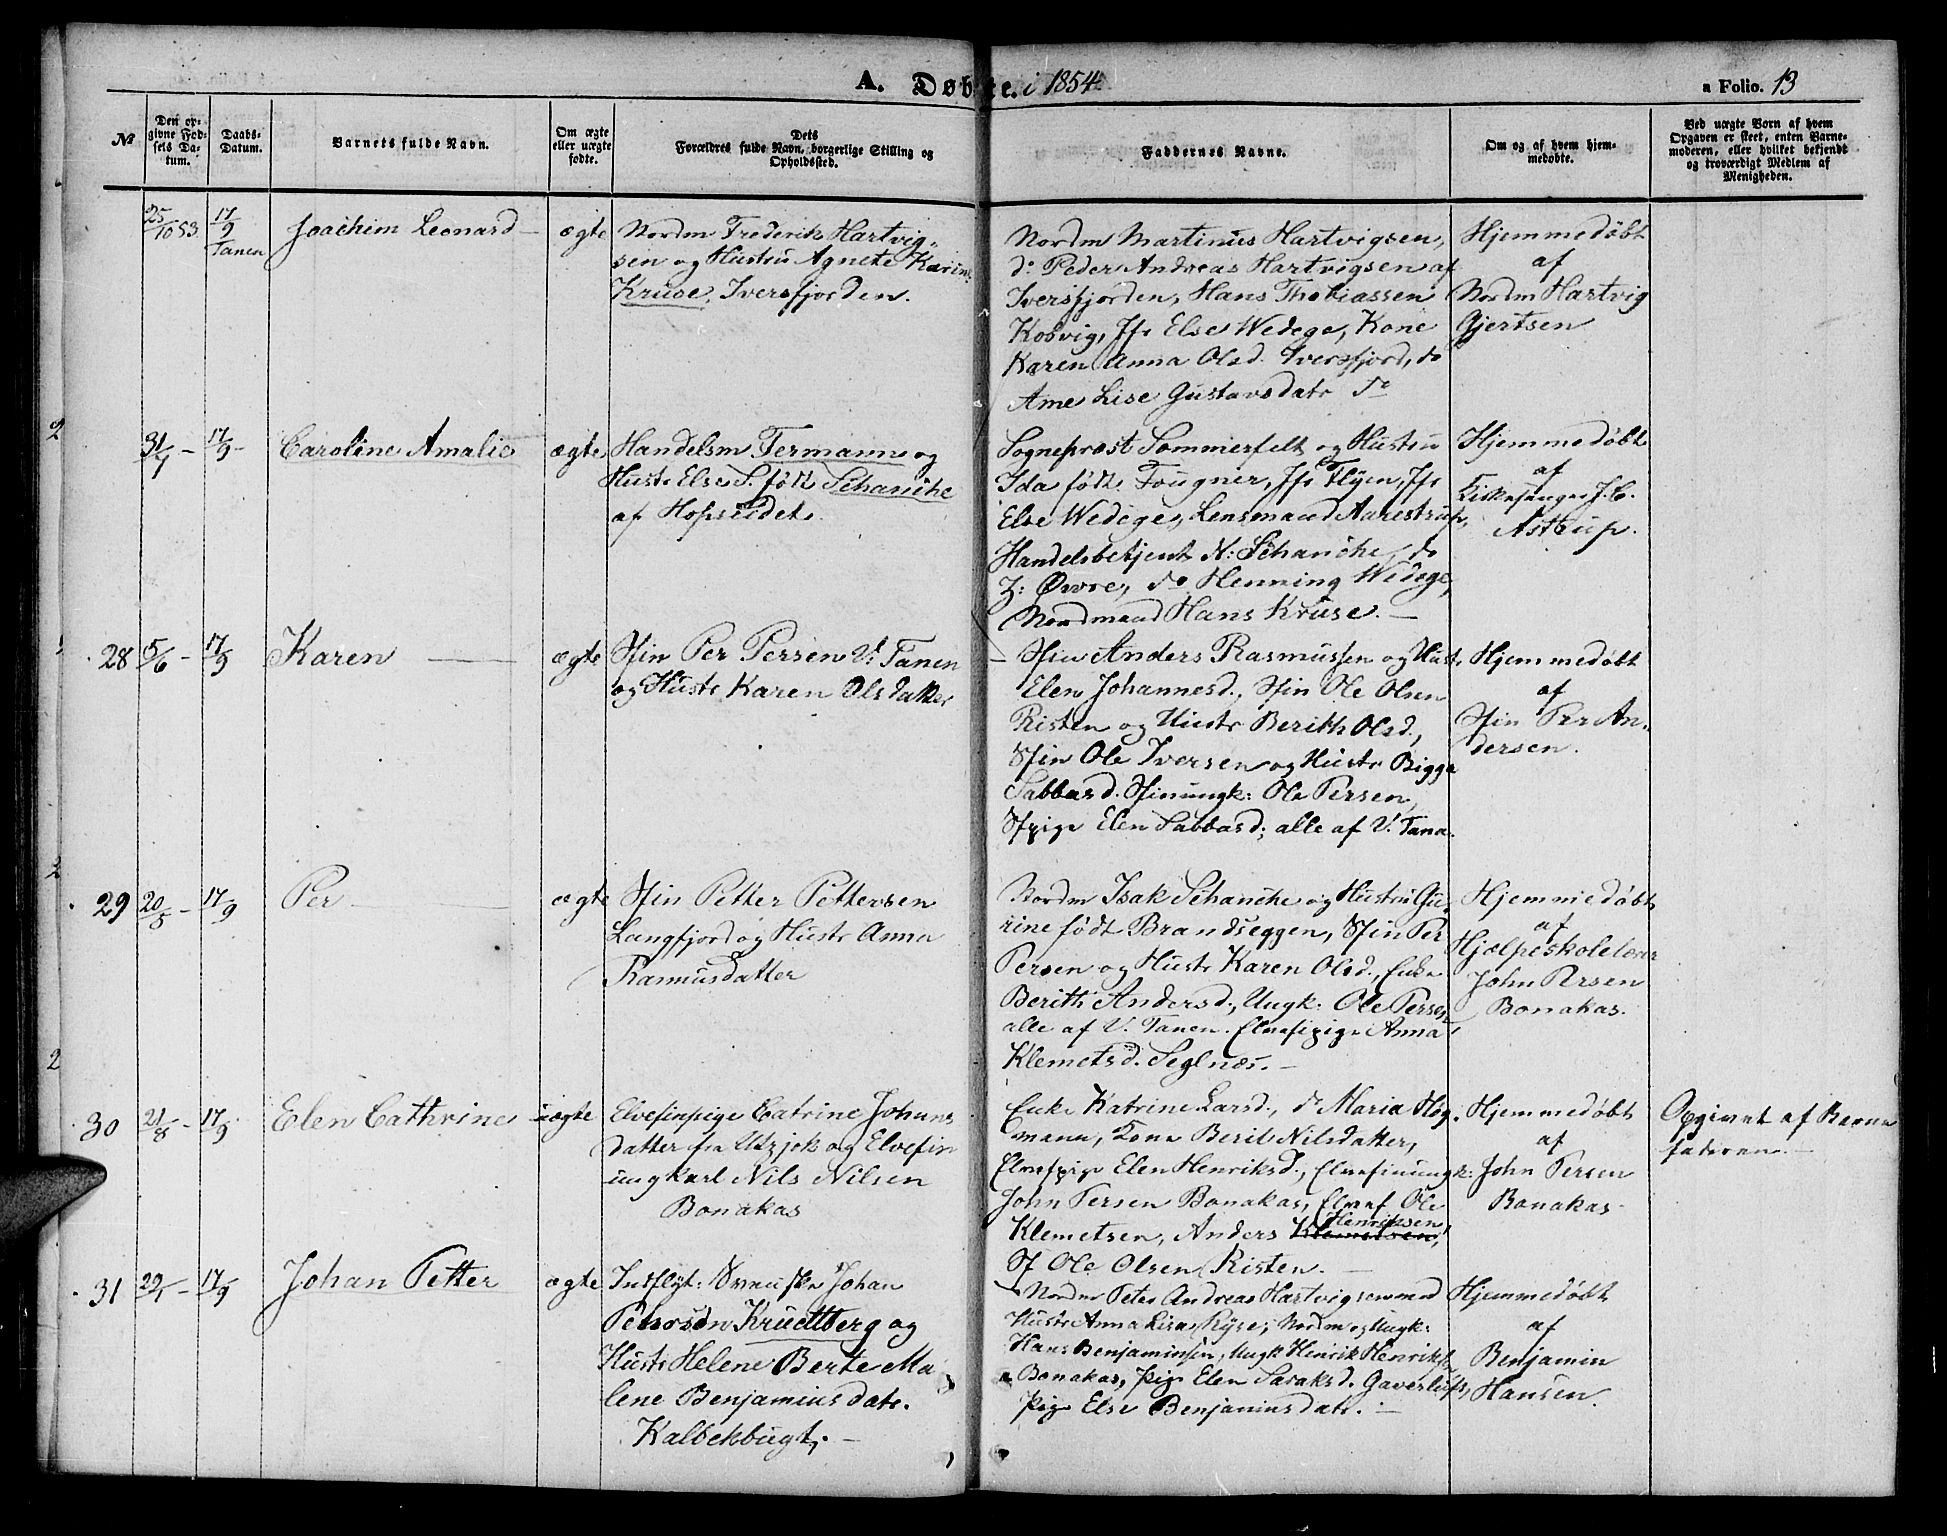 A. Døbte. i 1854.
a Folio. 13
№
Den op-
givne Fød-
sels Da-
tum.
Daabs-
Datum.
Barnets fulde Navn.
Om ægte
eller uægte
fødte.
Dets
Forældres fulde Navn, borgerlige Stilling og
Opholdssted.
Faddernes Navne.
Om og af hvem hjem-
medøbte.
Ved uægte Børn af hvem
Opgaven er skeet, enten Barne-
moderen, eller hvilket bekjendt
og troværdigt Medlem af
Menigheden.
25/10 53
17/9
Tanen
Joachim Leonard
ægte
Nordm Frederik Hartvig-
sen og Hustru Agnete Karine
Kruse, Iversfjorden.
Nordm Martinus Hartvigsen,
do Peder Andreas Hartvigsen af
Iversfjorden, Hans Thobiassen
Kobvig, Jfr Else Wedege, Kone
Karen Anna Olsd. Iversfjord, do
Ane Lise Gustavsdatr do
Hjemmedøbt
af
Nordm Hartvig
Gjertsen
17/9 -
Caroline Amalie
ægte
Handelsm Fermann og
Hustr Else S. født Schanche
af Hopseidet.
Sogneprest Sommerfelt og Hustru
Ida født Fougner, Jfr Flyen, Jfr
Else Wedege, Lensmand Aarestrup,
Handelsbetjent N: Schanche, do
Z: Øwre, do Henning Wedege,
Nordmand Hans Kruse. —
Hjemmedøbt
af
Kirkesanger J. C.
Astrup.
28
5/6 -
17/9
Karen
ægte
Sfin Per Persen V: Tanen
og Hustr Karen Olsdatter
Sfin Anders Rasmussen og Hustr
Elen Johannesd., Sfin Ole Olsen
Risten og Hustr Berith Olsd.,
Sfin Ole Iversen og Hustr Bigga
Sabbasd. Sfinungk: Ole Persen,
Sfpige Elen Sabbasd; alle af V: Tana.
Hjemmedøbt
af
Sfin Per An-
dersen.
29
20/5 -
17/9
Per
ægte
Sfin Petter Pettersen
Langfjord og Hustr Anna
Rasmusdatter
Nordm Isak Schanche og Hustru Gu-
rine født Brandseggen, Sfin Per
Persen og Hustr Karen Olsd., Enke
Berith Andersd., Ungk: Ole Persen,
alle af V: Tanen. Elvefipige Anna
Klemetsd. Seglnæs. —
Hjemmedøbt
af
Hjælpeskolelærer
John Persen
Bonakas.
30
21/8 -
17/9
Elen Cathrine
uægte
Elvefinpige Catrine Johans
datter fra Utzjok og Elvefin
ungkarl Nils Nilsen
Bonakas
Enke Katrine Larsd., do Maria Høg-
mann, Kone Berit Nilsdatter,
Elvefpige Elen Henriksd., Elvefinungk:
John Persen Bonakas, Elvef Ole
Klemetsen, Anders Klemetsen, Henriksen,
Sf Ole Olsen Risten. —
Hjemmedøbt
af
John Persen
Bonakas
Opgivet af Barne
faderen. —
31
29/1 -
17/9
Johan Petter
ægte
Indflyt: Svensker Johan
Kruettberg og
Hustr Helene Berte Ma
lene Benjaminsdatr.
Kalbekbugt. —
Nordm Peter Andreas Hartvigsen med
Hustr Anna Lisa Kyse; Nordm og Ungk:
Hans Benjaminsen, Ungk Henrik Henriksen
Bonakas, Pige Elen Saraksd. Gaverluft,
Pige Else Benjaminsdatr. —
Hjemmedøbt
af
Benjamin
Hansen.